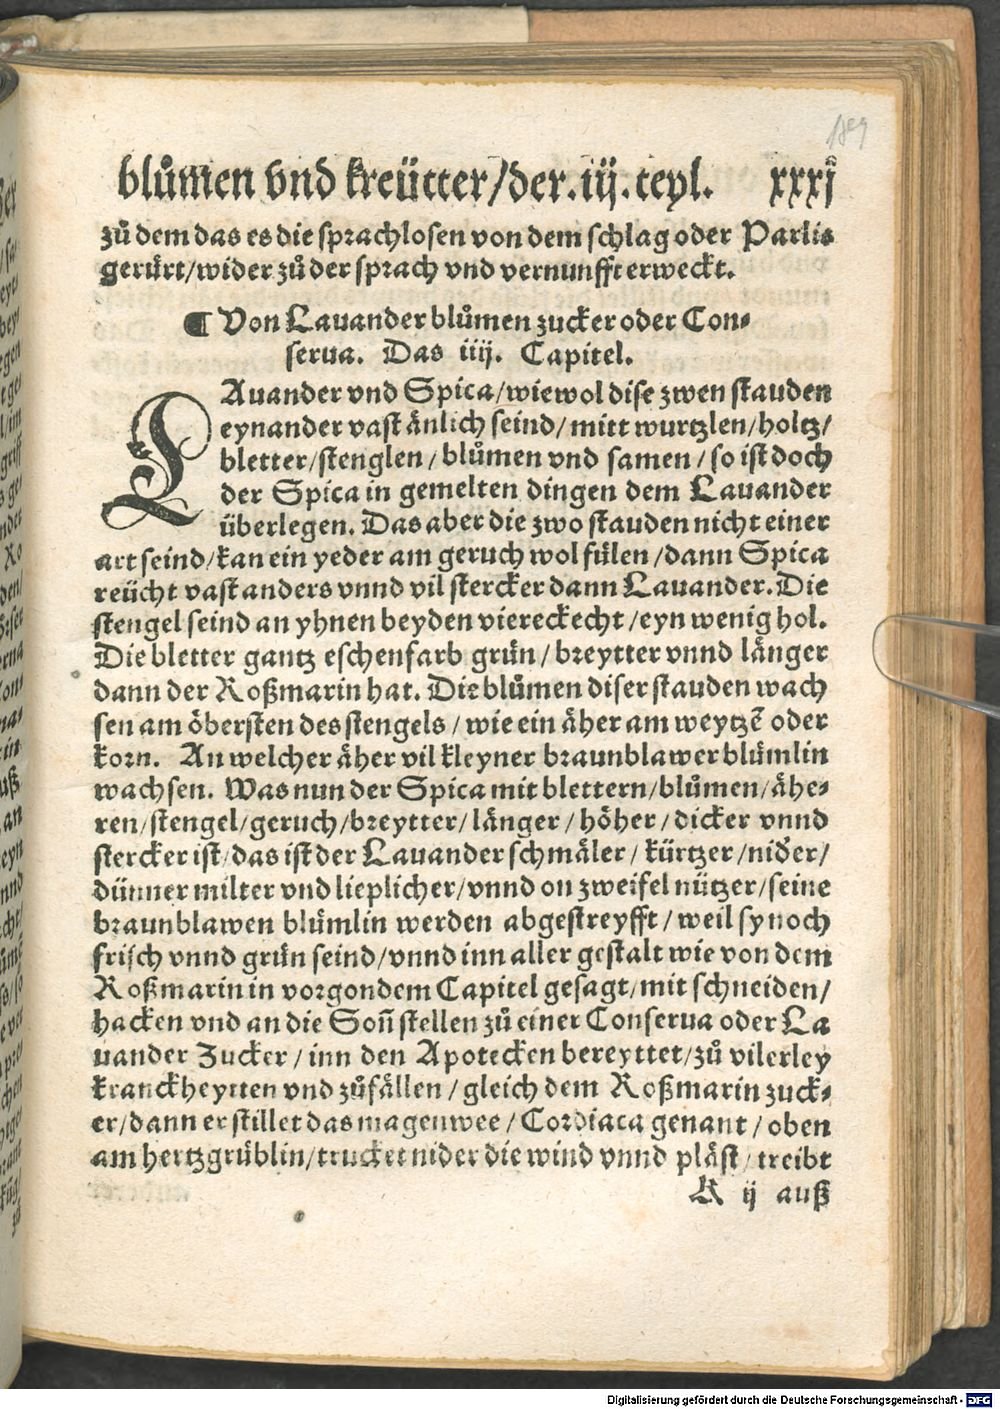 189
blůmen vnd kreütter/der.iij.teyl. xxxj
zů dem das es die sprachlosen von dem schlag oder Parlis
gerürt/wider zů der sprach vnd vernunfft erweckt.
¶ Von Lauander blůmen zucker oder Con-
serua. Das iiij. Capitel.
LAuander vnd Spica/wiewol dise zwen stauden
eynander vast änlich seind/mitt wurtzlen/holtz/
bletter/stenglen/blůmen vnd samen/so ist doch
der Spica in gemelten dingen dem Lauander
überlegen. Das aber die zwo stauden nicht einer
art seind/kan ein yeder am geruch wol fülen/dann Spica
reücht vast anders vnnd vil stercker dann Lauander. Die
stengel seind an yhnen beyden viereckecht/eyn wenig hol.
Die bletter gantz eschenfarb grün/breytter vnnd länger
dann der Roßmarin hat. Die blůmen diser stauden wach
sen am öbersten des stengels/wie ein äher am weytzē oder
korn. An welcher äher vil kleyner braunblawer blümlin
wachsen. Was nun der Spica mit blettern/blůmen/ähe-
ren/stengel/geruch/breytter/länger/höher/dicker vnnd
stercker ist/das ist der Lauander schmäler/kürtzer/nid̄er/
dünner milter vnd lieplicher/vnnd on zweifel nützer/seine
braunblawen blümlin werden abgestreyfft/weil sy noch
frisch vnnd grün seind/vnnd inn aller gestalt wie von dem
Roßmarin in vorgondem Capitel gesagt/mit schneiden/
hacken vnd an die Soñ stellen zů einer Conserua oder La
uander Zucker/inn den Apotecken bereyttet/zů vilerley
kranckheytten vnd zůfällen/gleich dem Roßmarin zuck-
er/dann er stillet das magenwee/Cordiaca genant/oben
am hertzgrüblin/trucket nider die wind vnnd pläst/treibt
K ij auß
Digitalisierung gefördert durch die Deutsche Forschungsgemeinschaft - DFG